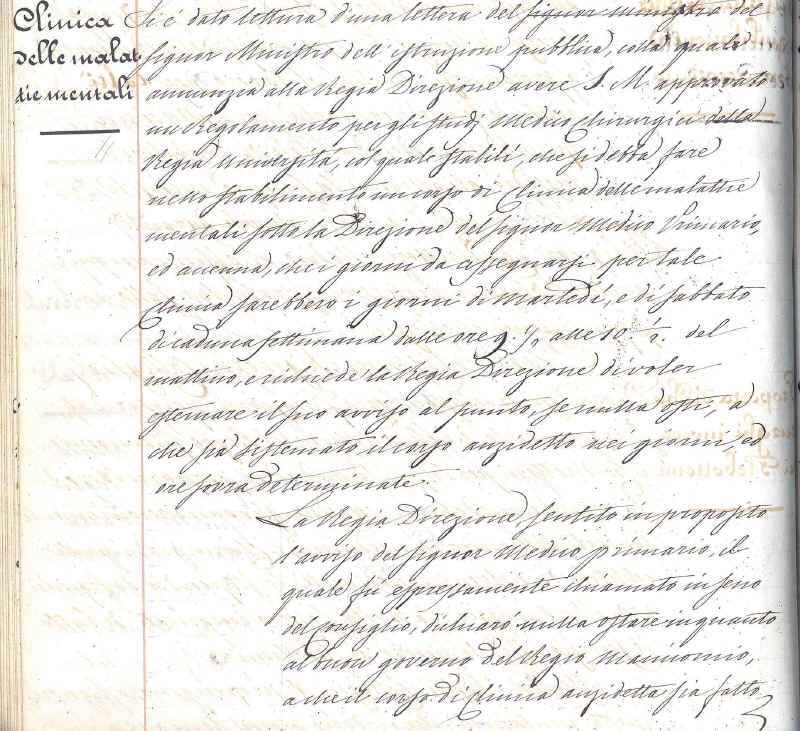 Clinica
delle malat
tie mentali
Si è dato lettura d'una lettera del signor ministro del
signor Ministro dell'istruzione pubblica, colla quale
annunzia alla Regia Direzione avere S. M. approvato
un Regolamento per gli studj Medico Chirurgici della
Regia Università, col quale stabilì, che si debba fare
nello stabilimento un corso di Clinica delle malattie
mentali sotto la Direzione del signor Medico Primario,
ed accenna, che i giorni da assegnarsi per tale
Clinica sarebbero i giorni di Martedì, e di sabbato
di caduna settimana dalle ore 9. 1/2 alle 10. 1/2. del
mattino, e richiede la Regia Direzione di voler
esternare il suo avviso al punto, se nulla osti, a
che sia sistemato il corso anzidetto nei giorni, ed
ore sovra determinate.
La Regia Direzione, sentito in proposito
l'avviso del signor Medico primario, il
quale fu espressamente chiamato in seno
del Consiglio, dichiarò nulla ostare in quanto
al buon governo del Regio Manicomio,
a che il corso di Clinica anzidetta sia fatto